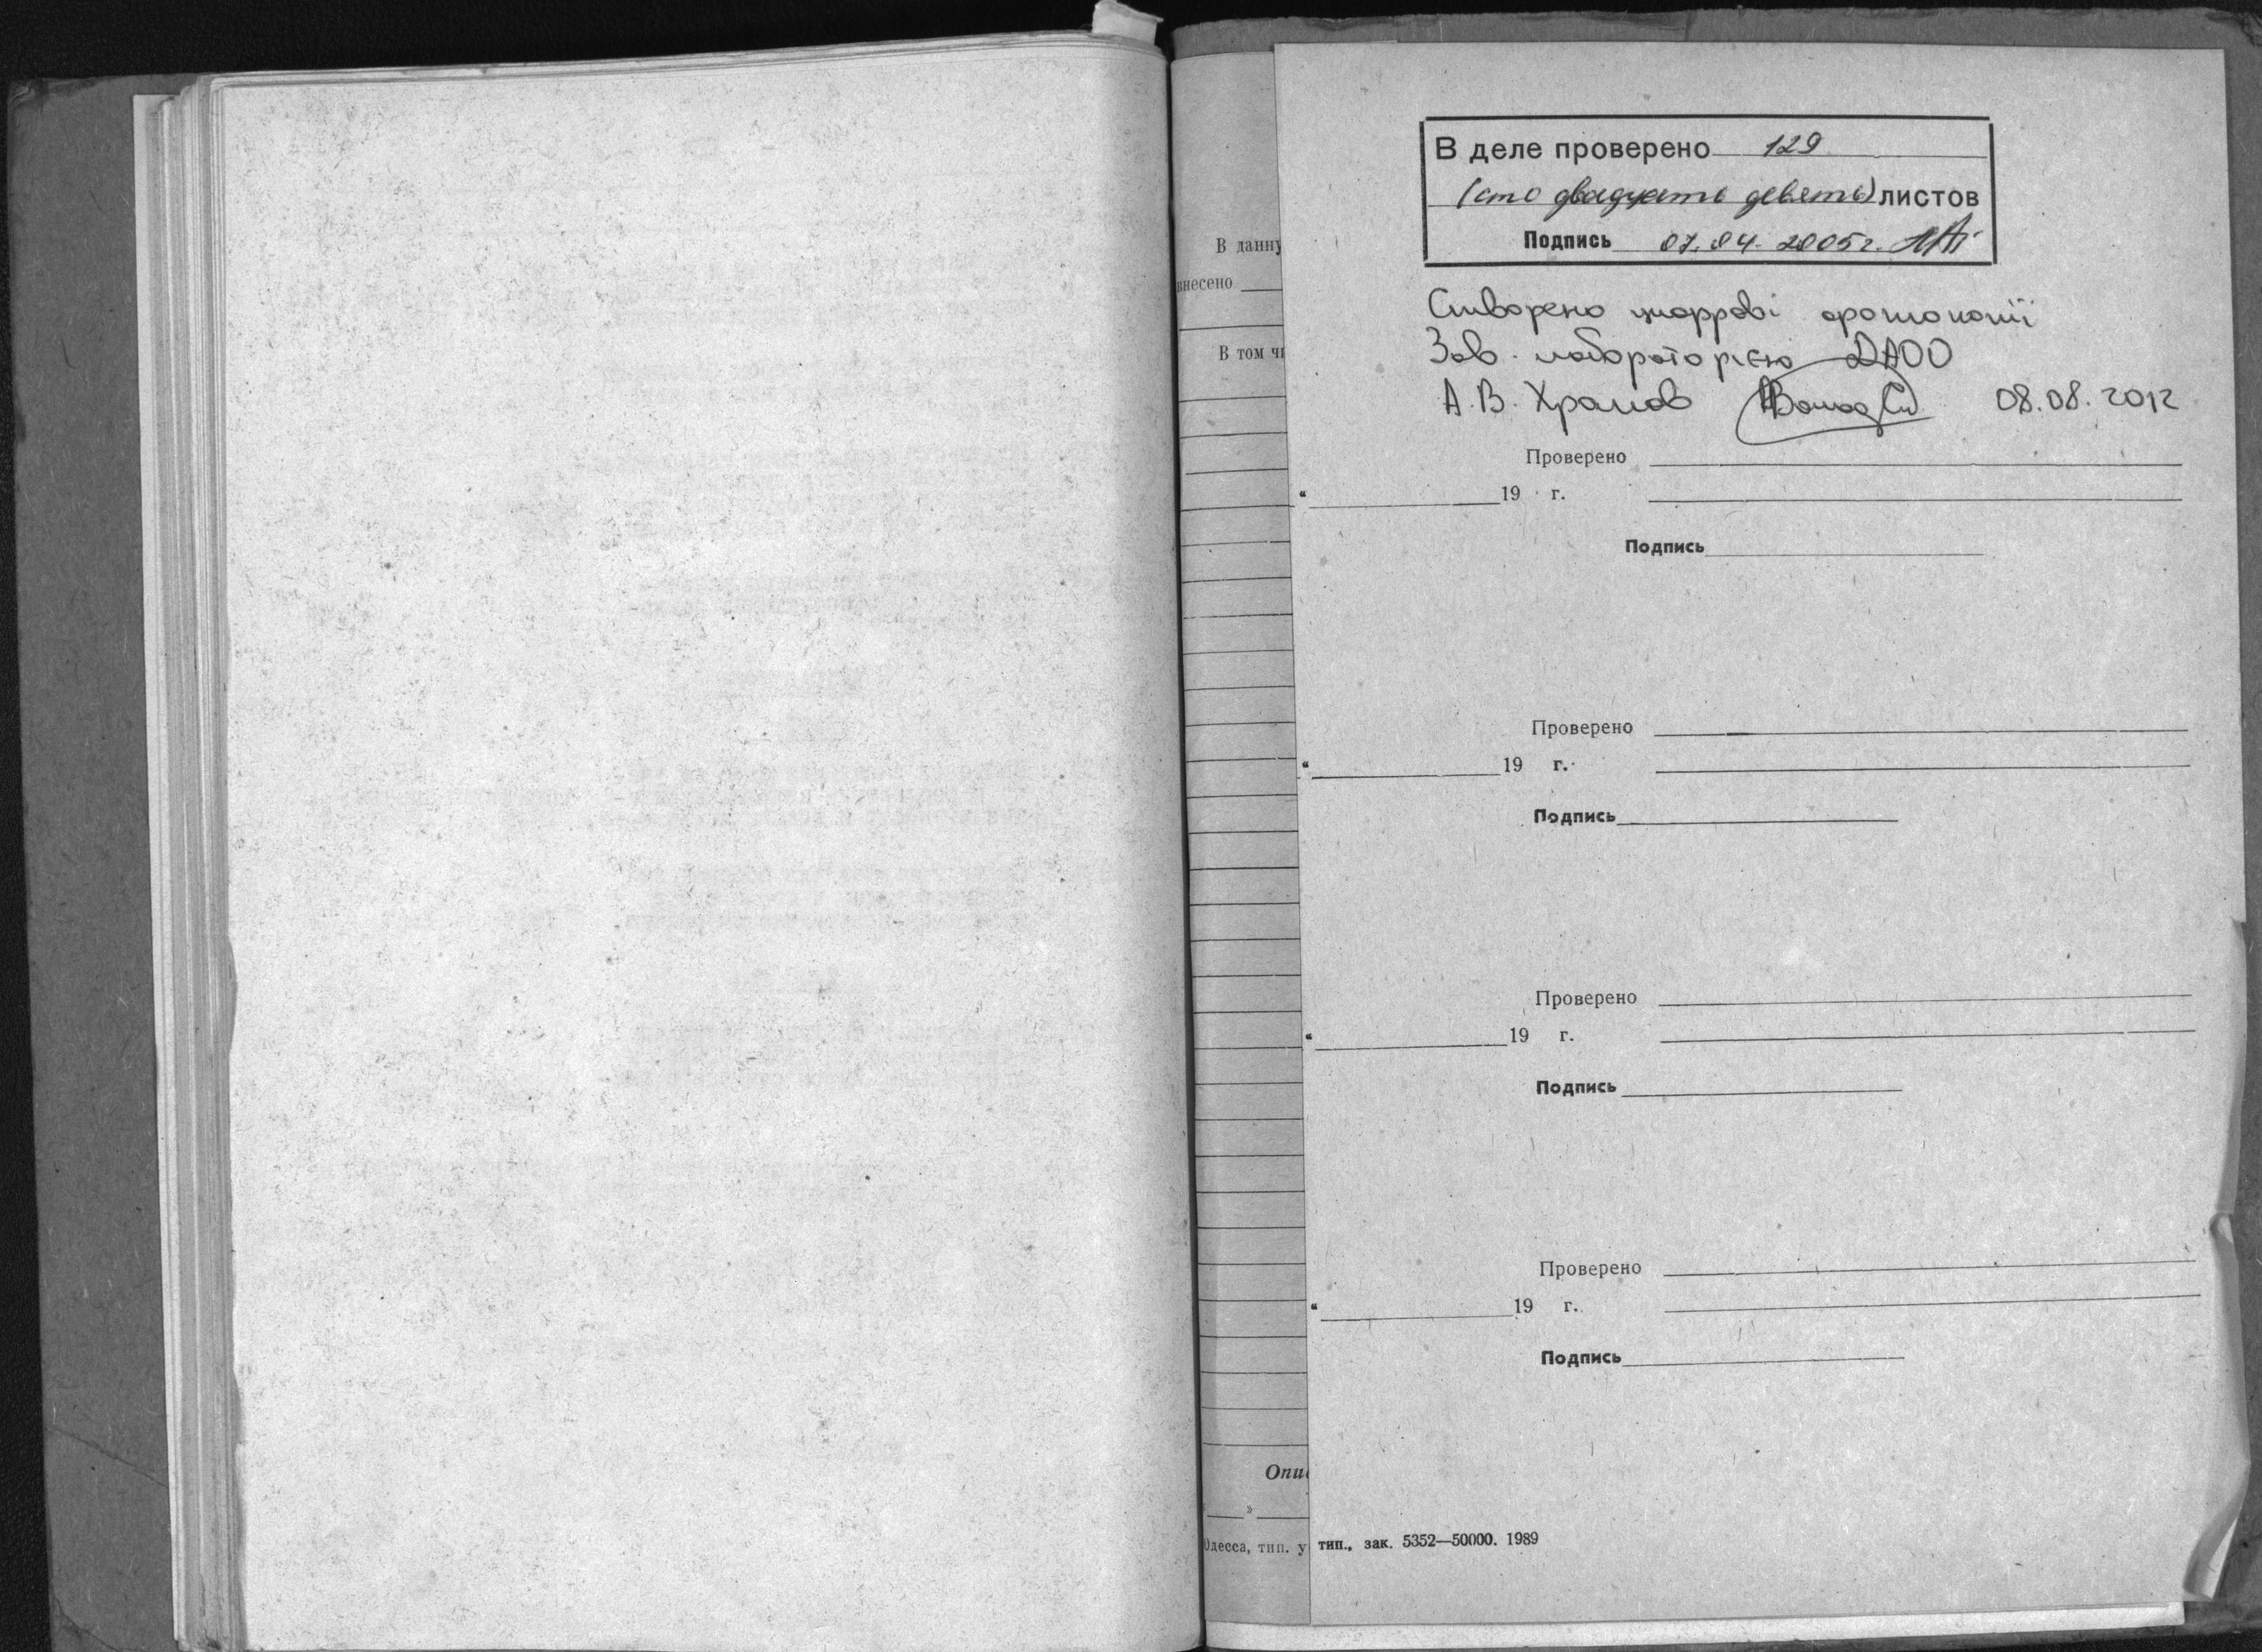 В деле проверено 129
(сто двадцать девять) листов
Подпись 07.04.2005г.
Створено цифрові фотокопії
Зав. лабораторією ДАОО
А.В. Храмов 08.08.2012
В данну
внесено
В том чи
Проверено
" 19 г.
Подпись
Проверено
" 19 г.
Подпись
Проверено
" 19 г.
Подпись
Проверено
" 19 г.
Подпись
Опи
»
Одесса, тип. у тип., зак. 5352—50000. 1989